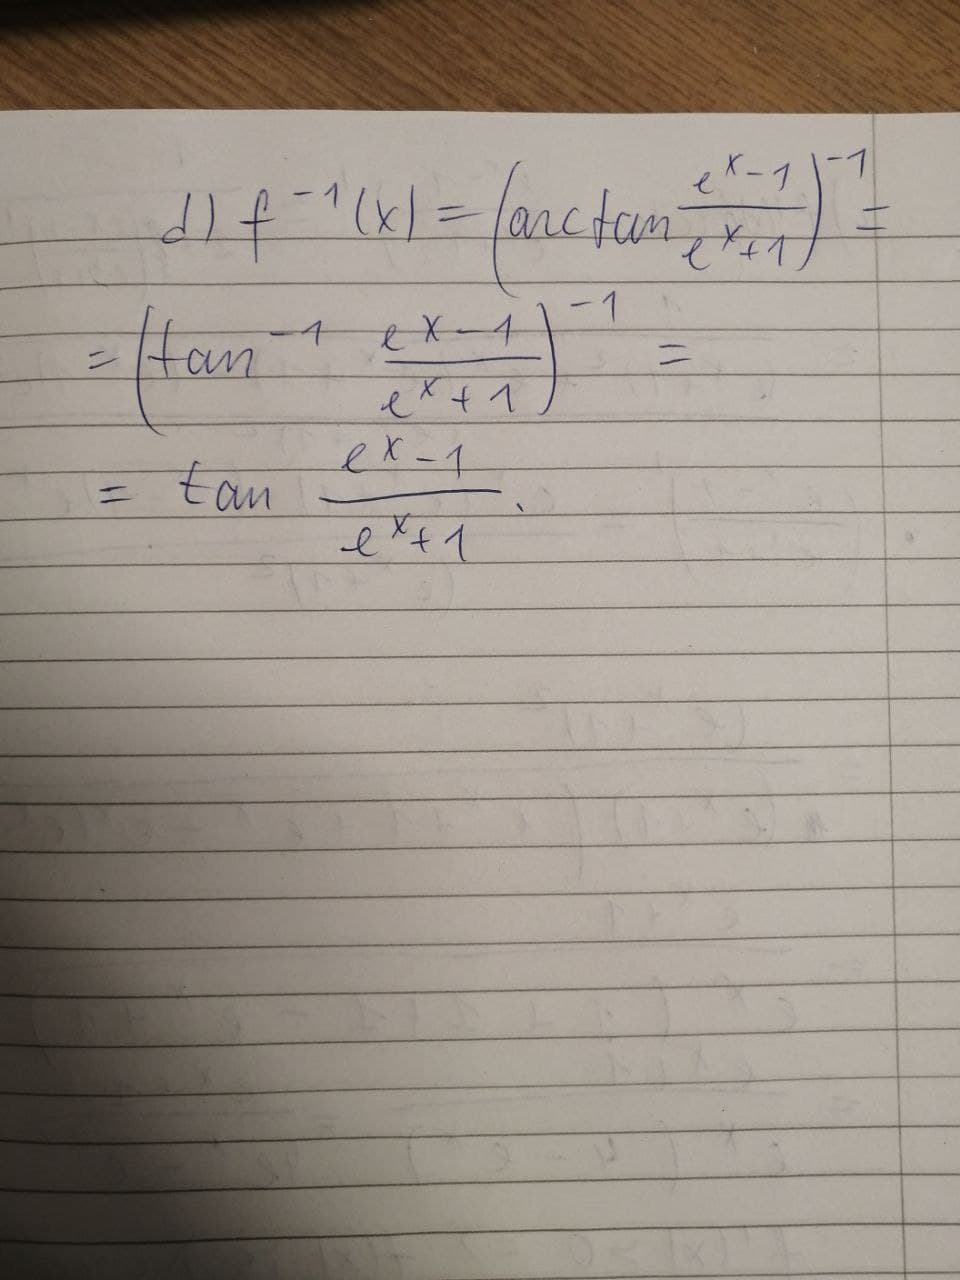 d) f⁻¹(x) = (arctan (eˣ-1)/(eˣ+1))⁻¹ =
= (tan⁻¹ (eˣ-1)/(eˣ+1))⁻¹ =
= tan (eˣ-1)/(eˣ+1).